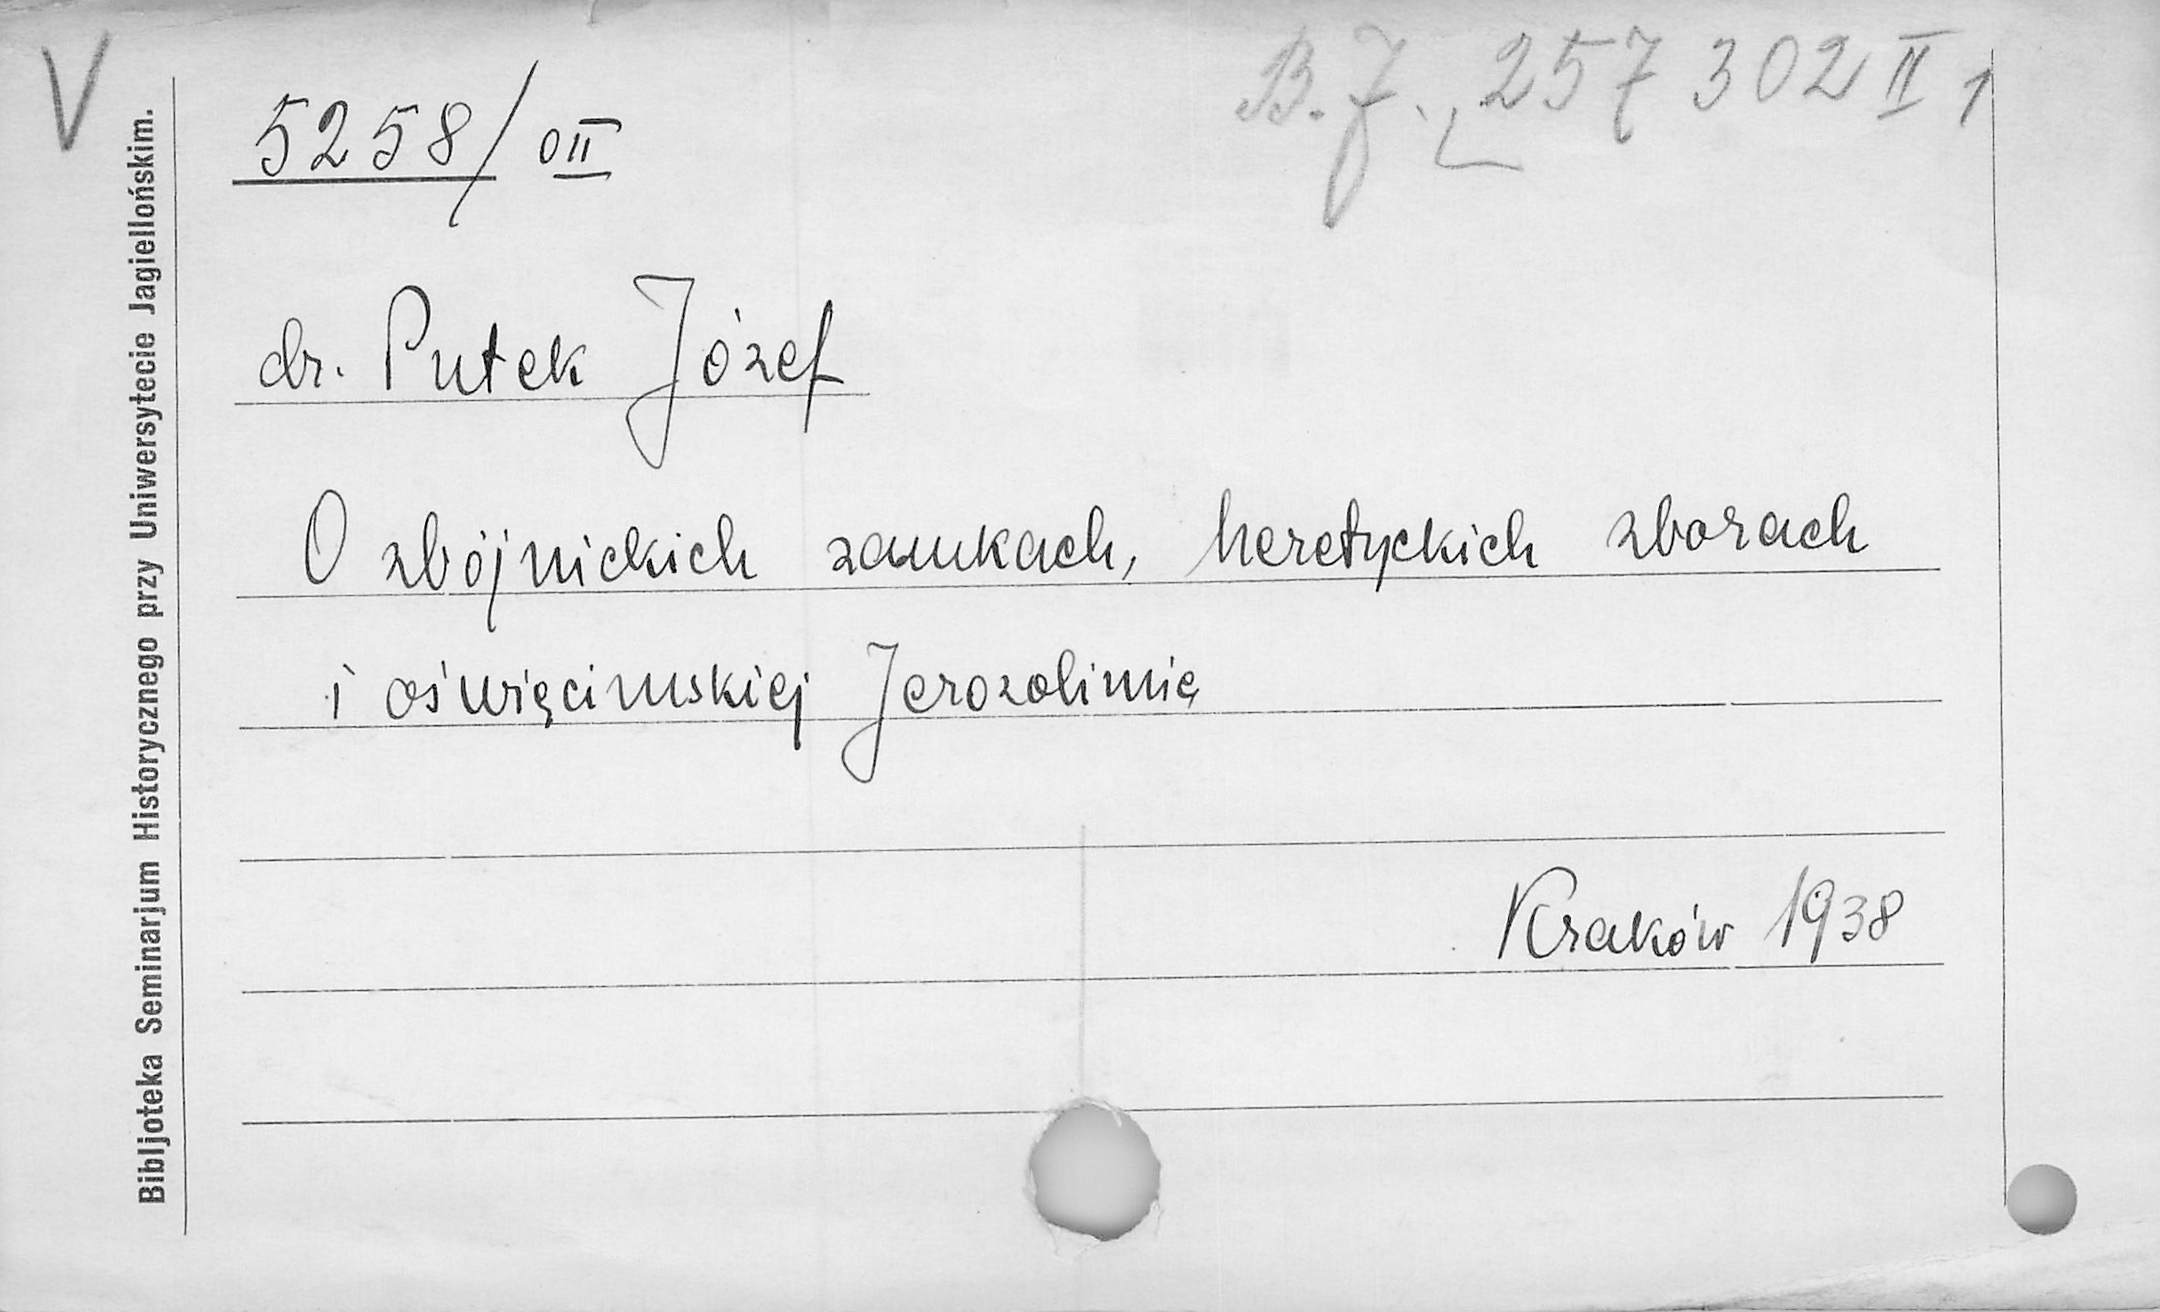 V
B. J. 257 302 II 1
5258/ 0II
dr. Putek Józef
O zbójnickich zamkach, heretyckich zborach
i oświęcimskiej Jerozolimie
Kraków 1938
Bibljoteka Seminarjum Historycznego przy Uniwersytecie Jagiellońskim.